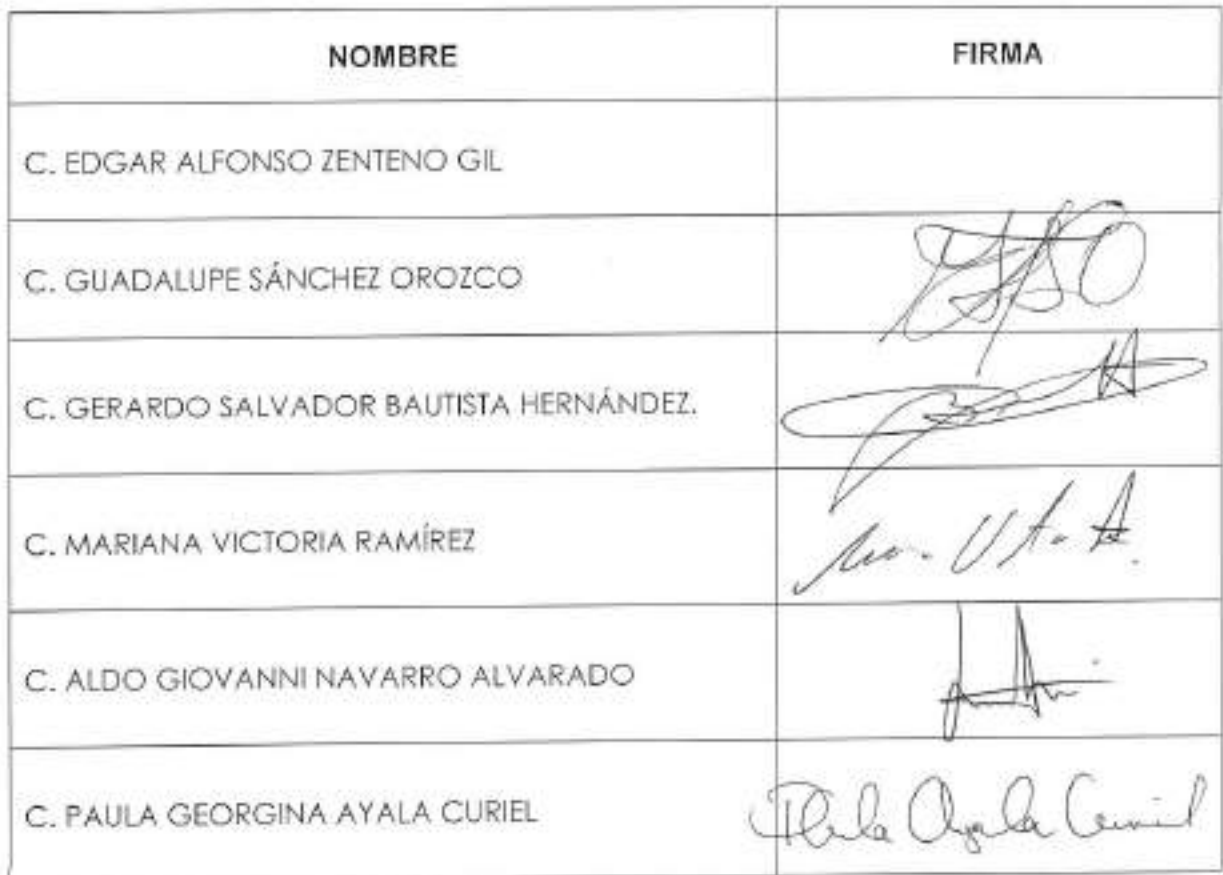 NOMBRE FIRMA
C. EDGAR ALFONSO ZENTENO GIL
C. GUADALUPE SÁNCHEZ OROZCO
C. GERARDO SALVADOR BAUTISTA HERNÁNDEZ.
C. MARIANA VICTORIA RAMÍREZ
C. ALDO GIOVANNI NAVARRO ALVARADO
C. PAULA GEORGINA AYALA CURIEL Paula Ayala Curiel